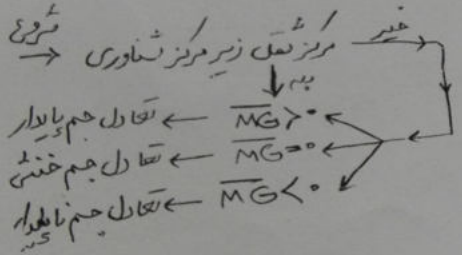 شروع
→ مرکز ثقل زیر مرکز شناوری خیر
بله
MG > 0 ← تعادل جسم پایدار
MG = 0 ← تعادل جسم خنثی
MG < 0 ← تعادل جسم ناپایدار